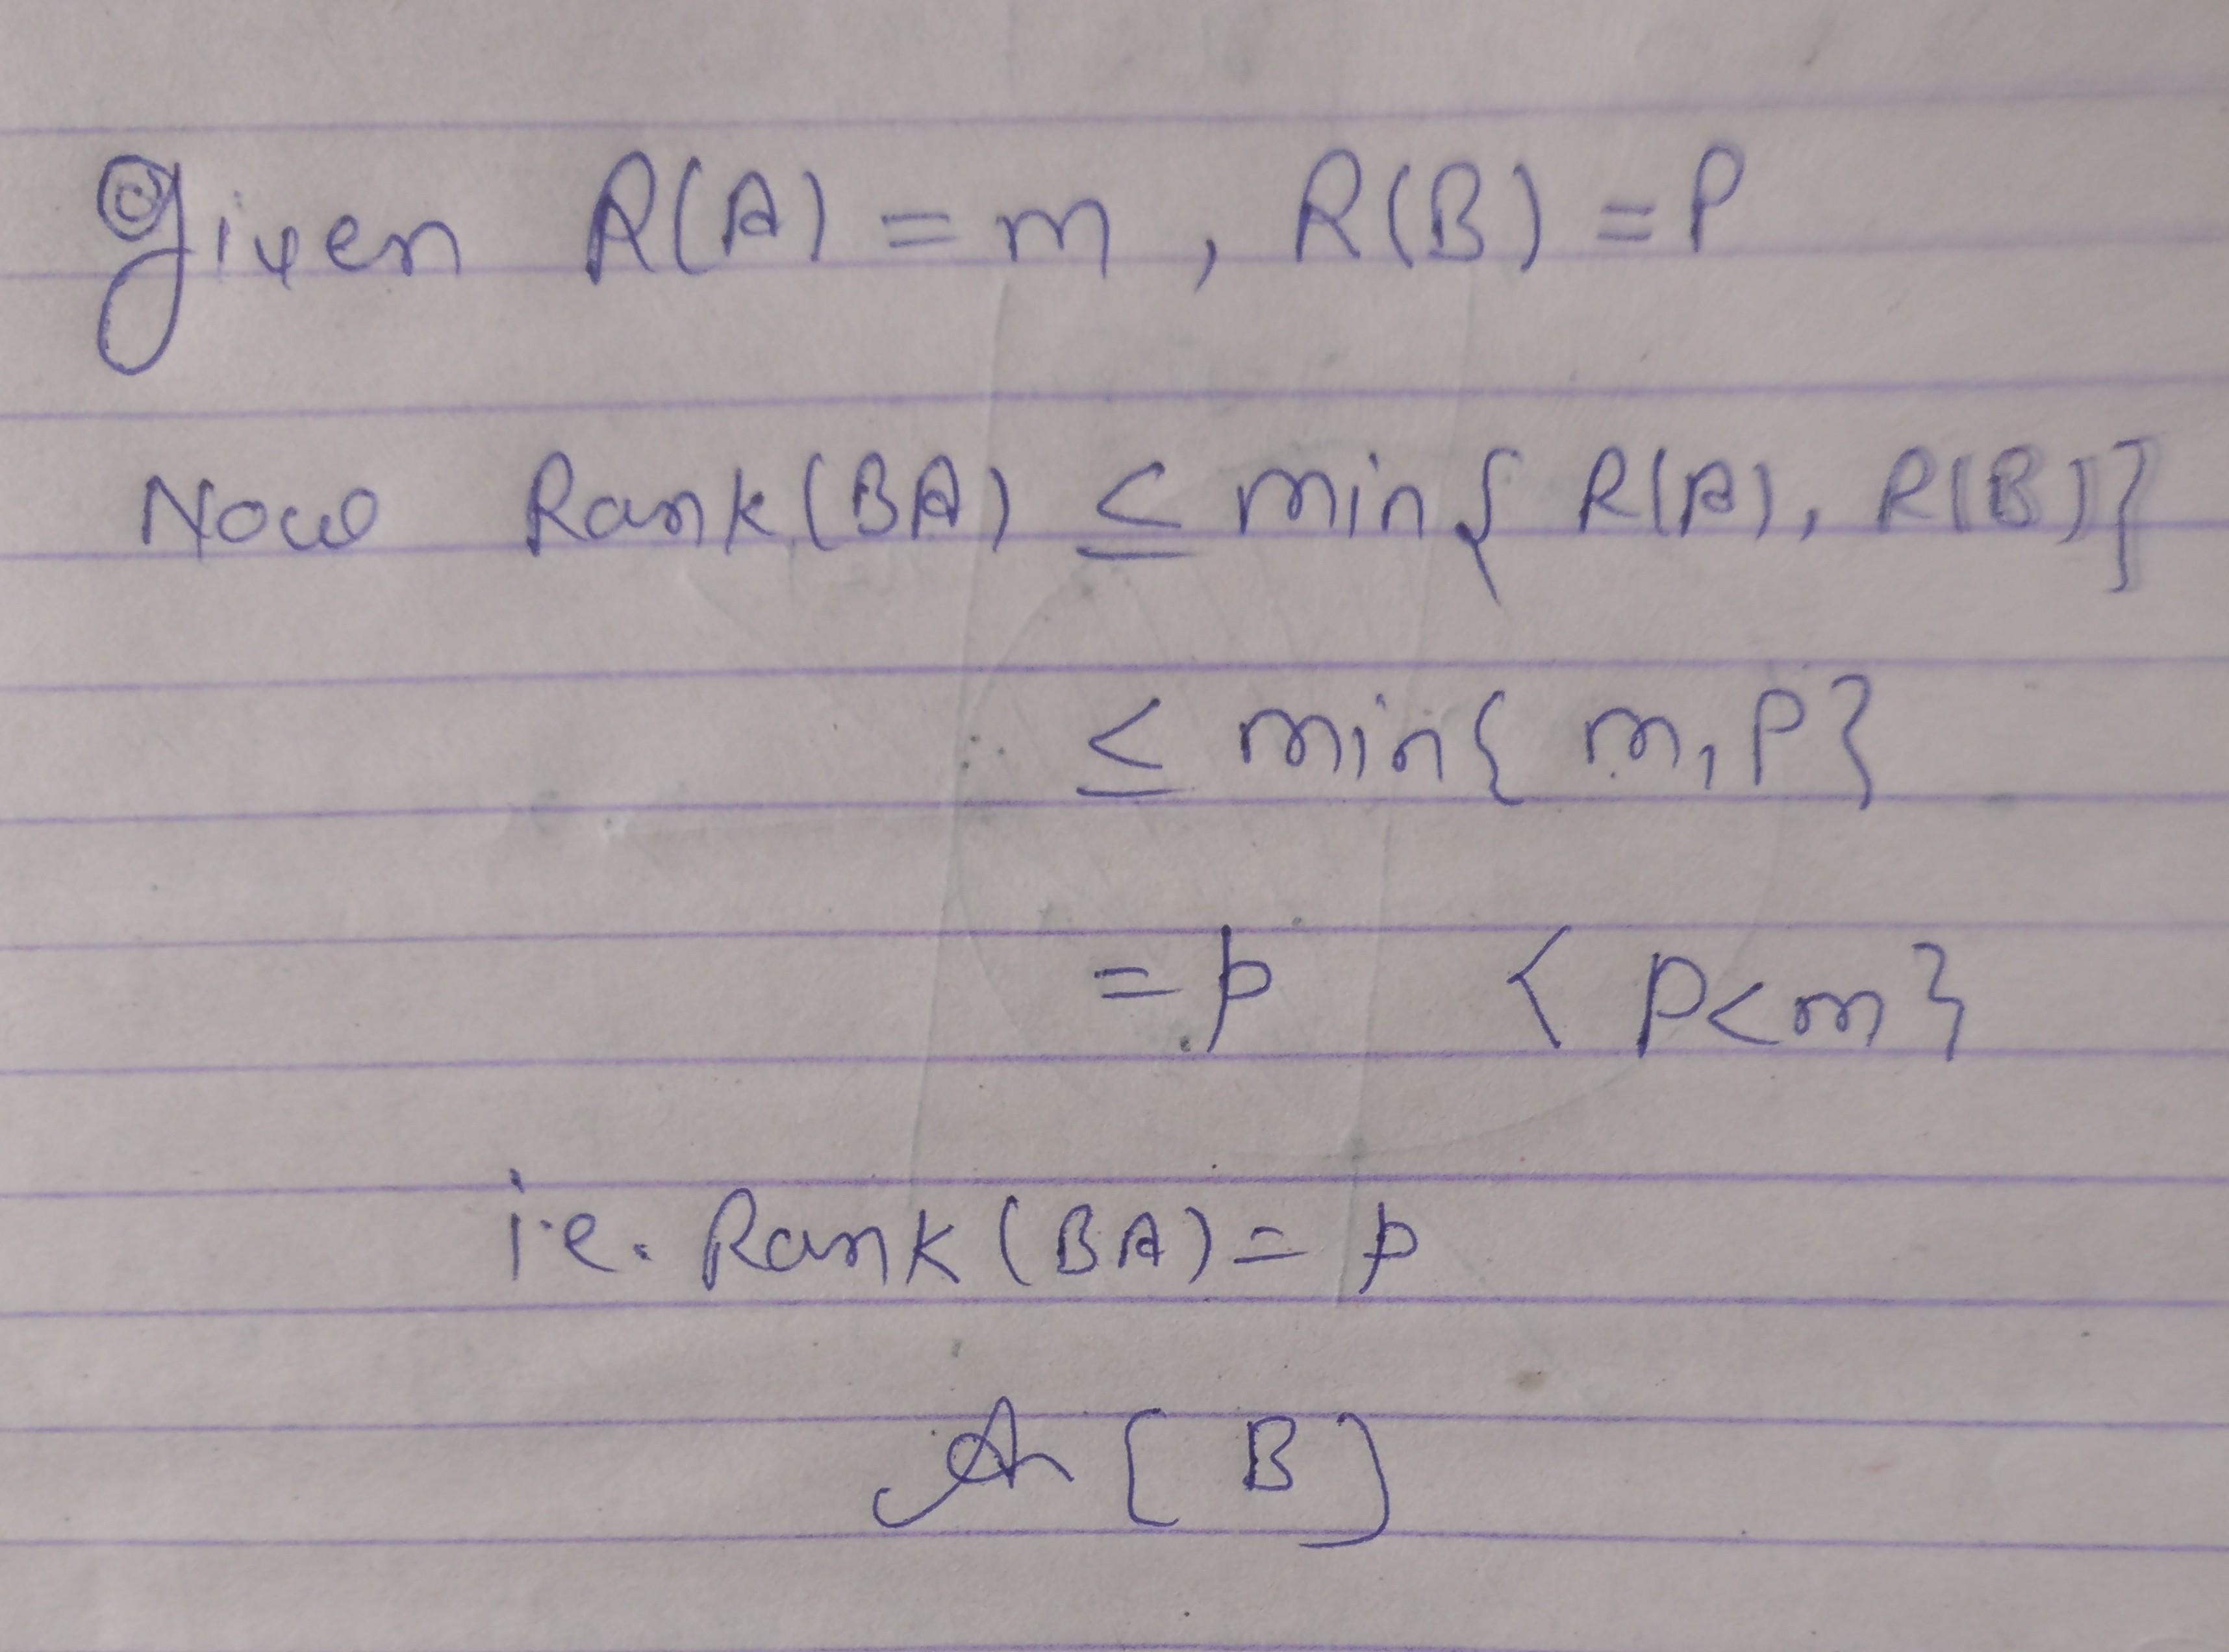 Given R(A) = m , R(B) = P
Now Rank(BA) ≤ min{ R(A), R(B)}
≤ min{ m, P}
= p { P<m}
i.e. Rank(BA) = p
A [ B ]